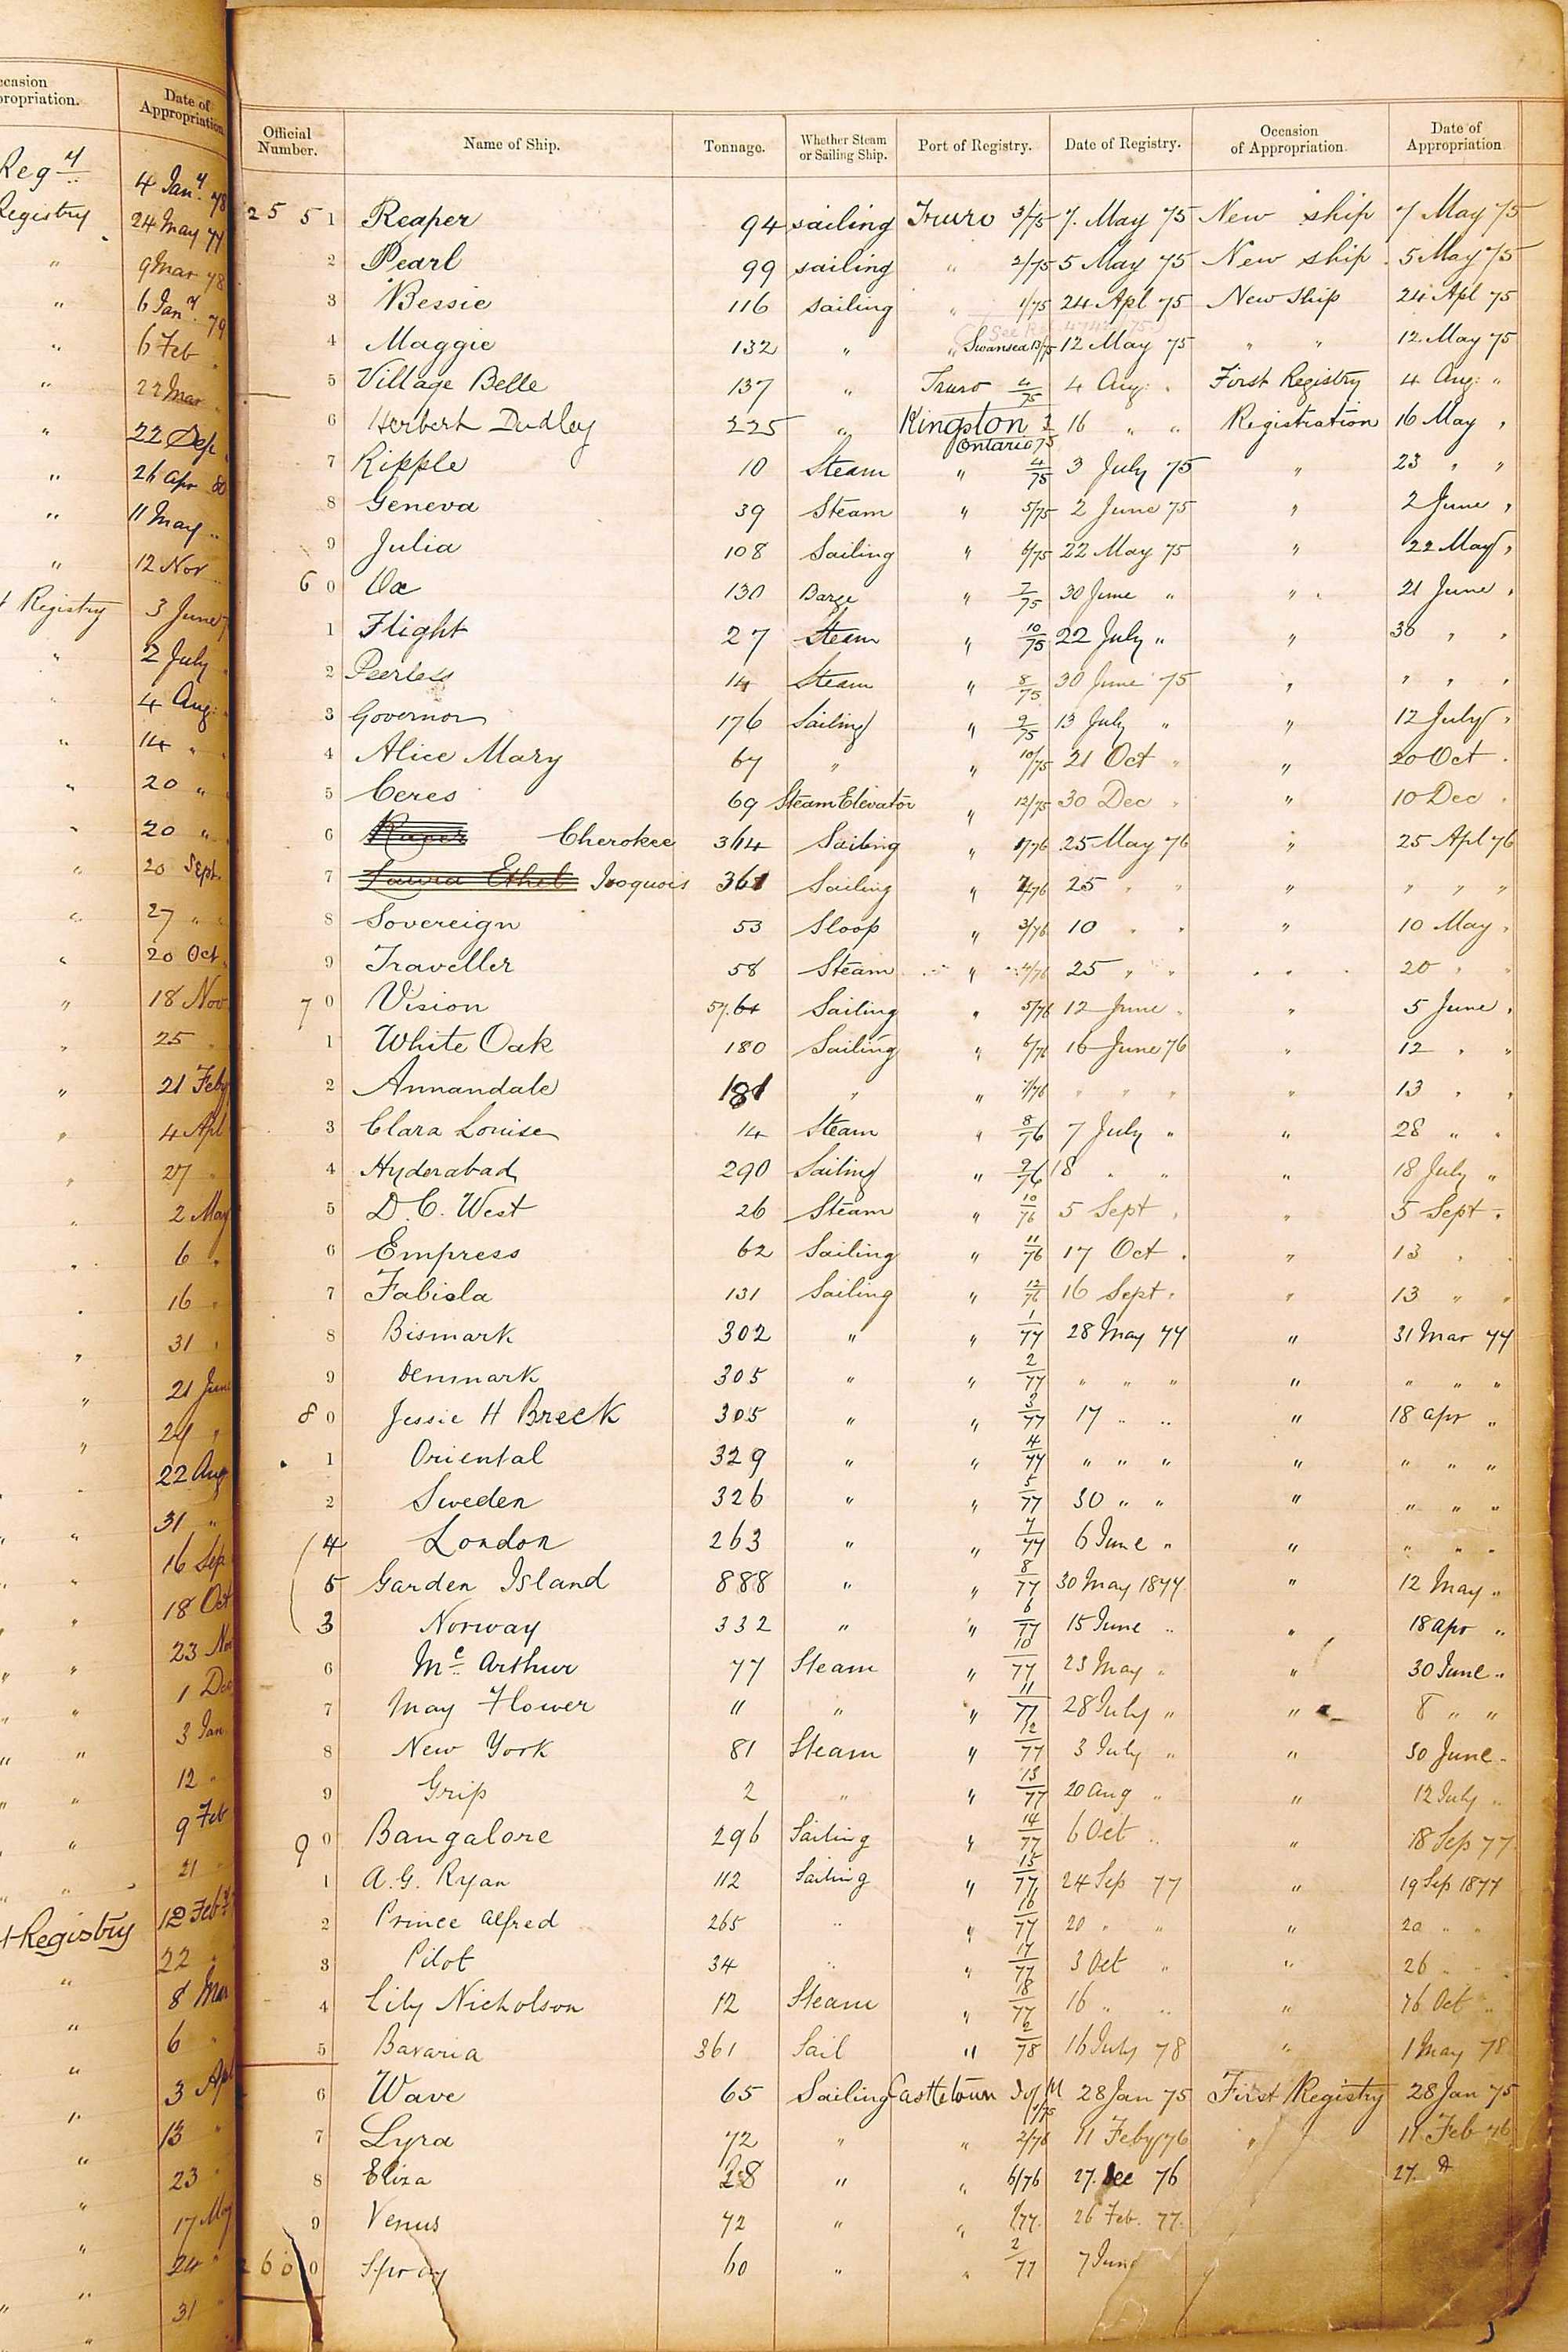 ccasion
propriation.
Date of
Appropriation
Regy
4 Jany. 78
Registry
24 May 77
" 9 Mar 78
" 6 Jany. 79
" 6 Feb
" 22 Mar
" 22 Sep
" 26 Apr 80
" 11 May "
" 12 Nov
Registry 3 June
" 2 July
4 Aug:
" 14 "
" 20 "
" 20 "
" 20 Sept.
" 27 "
" 20 Oct.
" 18 Nov
" 25
" 21 Feby
" 4 Apl
" 27 "
" 2 May
" 6 "
16 "
" 31 "
" 21 Jun
" 24 "
22 Aug
" 31 "
" 16 Sep
" 18 Oct
" 23 No
" " 1 Dec
" " 3 Jan
" " 12 "
" " 9 Feb
" 21 "
t Registry 12 Feby
" 22 "
" 8 Mar
" 6 "
" 3 Apl
" 13 "
" 23 "
" 17 May
" 24 "
" 31 "
Official Number.
Name of Ship.
Tonnage.
Whether Steam or Sailing Ship.
Port of Registry.
Date of Registry.
Occasion of Appropriation.
Date of Appropriation
25 5 1 Reaper 94 sailing Truro 3/75 7. May 75 New ship 7 May 75
2 Pearl 99 sailing " 2/75 5 May 75 New ship 5 May 75
3 Bessie 116 sailing " 1/75 24 Apl 75 New Ship 24 Apl 75
4 Maggie 132 " " Swansea 13/75 12 May 75 " " 12 May 75
5 Village Belle 137 " Truro 4/75 4 Aug: " First Registry 4 Aug: "
6 Herbert Dudley 225 " Kingston Ontario 3/75 16 " " Registration 16 May "
7 Ripple 10 Steam " 4/75 3 July 75 " 23 " "
8 Geneva 39 Steam " 5/75 2 June 75 " 2 June "
9 Julia 108 Sailing " 6/75 22 May 75 " 22 May "
6 0 Ox 130 Barge " 7/75 30 June " " 21 June "
1 Flight 27 Steam " 10/75 22 July " " 30 " "
2 Peerless 14 Steam " 8/75 30 June 75 " " " "
3 Governor 176 Sailing " 9/75 13 July " " 12 July "
4 Alice Mary 67 " " 10/75 21 Oct " " 20 Oct "
5 Ceres 69 Steam Elevator " 12/75 30 Dec " " 10 Dec "
6 Racer Cherokee 364 Sailing " 1/76 25 May 76 " 25 Apl 76
7 Laura Ethel Iroquois 361 Sailing " 2/76 25 " " " " " "
8 Sovereign 53 Sloop " 3/76 10 " " " 10 May "
9 Traveller 58 Steam " 4/76 25 " " " 20 " "
7 0 Vision 57.64 Sailing " 5/76 12 June " " 5 June "
1 White Oak 180 Sailing " 6/76 16 June 76 " 12 " "
2 Annandale 181 " " 7/76 " " " " 13 " "
3 Clara Louise 14 Steam " 8/76 7 July " " 28 " "
4 Hyderabad 290 Sailing " 9/76 18 " " " 18 July "
5 D. C. West 26 Steam " 10/76 5 Sept " " 5 Sept "
6 Empress 62 Sailing " 11/76 17 Oct " " 13 " "
7 Fabiola 131 Sailing " 12/76 16 Sept " " 13 " "
8 Bismark 302 " " 1/77 28 May 77 " 31 Mar 77
9 Denmark 305 " " 2/77 " " " " " " "
8 0 Jessie H Breck 305 " " 3/77 17 " " " 18 apr "
1 Oriental 329 " " 4/77 " " " " " " "
2 Sweden 326 " " 5/77 30 " " " " " "
4 London 263 " " 7/77 6 June " " " " "
5 Garden Island 888 " " 8/77 30 May 1877 " 12 May "
3 Norway 332 " " 6/77 15 June " " 18 apr "
6 Mc Arthur 77 Steam " 10/77 23 May " " 30 June "
7 May Flower 11 " " 11/77 28 July " " 8 " "
8 New York 81 Steam " 12/77 3 July " " 30 June "
9 Grip 2 " " 13/77 20 aug " " 12 July "
9 0 Bangalore 296 Sailing " 14/77 6 Oct " " 18 Sep 77
1 A. G. Ryan 112 Sailing " 15/77 24 Sep 77 " 19 Sep 1877
2 Prince Alfred 265 " " 16/77 20 " " " 20 " "
3 Pilot 34 " " 17/77 3 Oct " " 26 " "
4 Lily Nicholson 12 Steam " 18/77 16 " " " 16 Oct "
5 Bavaria 361 Sail " 2/78 16 July 78 " 1 May 78
6 Wave 65 Sailing Castletown I of M 1/75 28 Jan 75 First Registry 28 Jan 75
7 Lyra 72 " " 2/76 11 Feby 76 " 11 Feb 76
8 Eliza 28 " " 6/76 27. Dec 76 27. "
9 Venus 72 " " 1/77. 26 Feb. 77.
260 0 Spray 60 " " 2/77 7 June